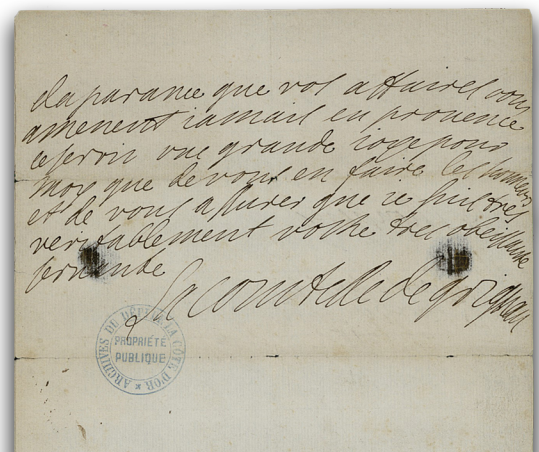 daparance que vos affaires vous
amenent iamais en provence
ce seroit une grande ioye pour
moy que de vous en faire les honneurs
et de vous assurer que ie suis tres
veritablement vostre tres obeissante
servante
La comtesse de grignan
ARCHIVES DU DÉPT DE LA CÔTE D'OR
PROPRIÉTÉ
PUBLIQUE